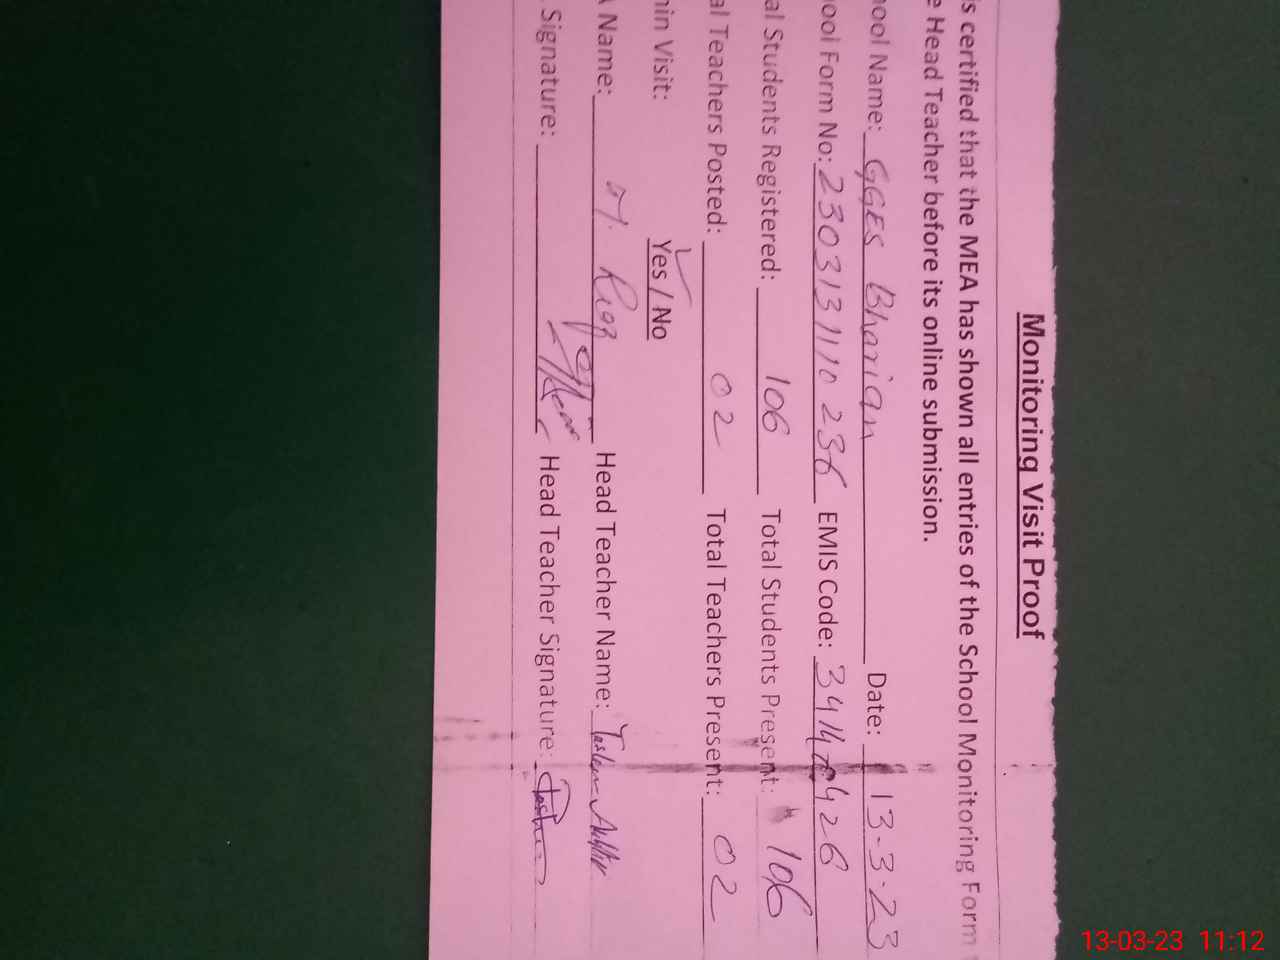 Monitoring Visit Proof
is certified that the MEA has shown all entries of the School Monitoring Form
e Head Teacher before its online submission.
ool Name: GGES Bharian Date: 13-3-23
ool Form No: 230313 1110 236 EMIS Code: 3414 426
al Students Registered: 106 Total Students Present: 106
al Teachers Posted: 02 Total Teachers Present: 02
in Visit: Yes / No
A Name: M. Riaz Head Teacher Name: Akhtar
Signature: Head Teacher Signature:
13-03-23 11:12